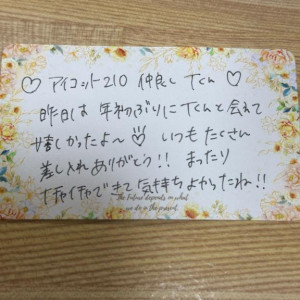 ♡ アイコット210 仲良し Tくん ♡
昨日は 年初ぶりに Tくんと会えて
嬉しかったよ〜♡ いつも たくさん
差し入れありがとう!! まったり
イチャイチャできて気持ちよかったね!!
The Future depends on what
we do in the present.